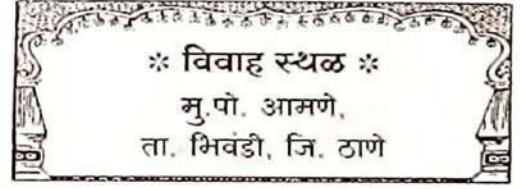 ※ विवाह स्थळ ※
मु.पो. आमणे,
ता. भिवंडी, जि. ठाणे